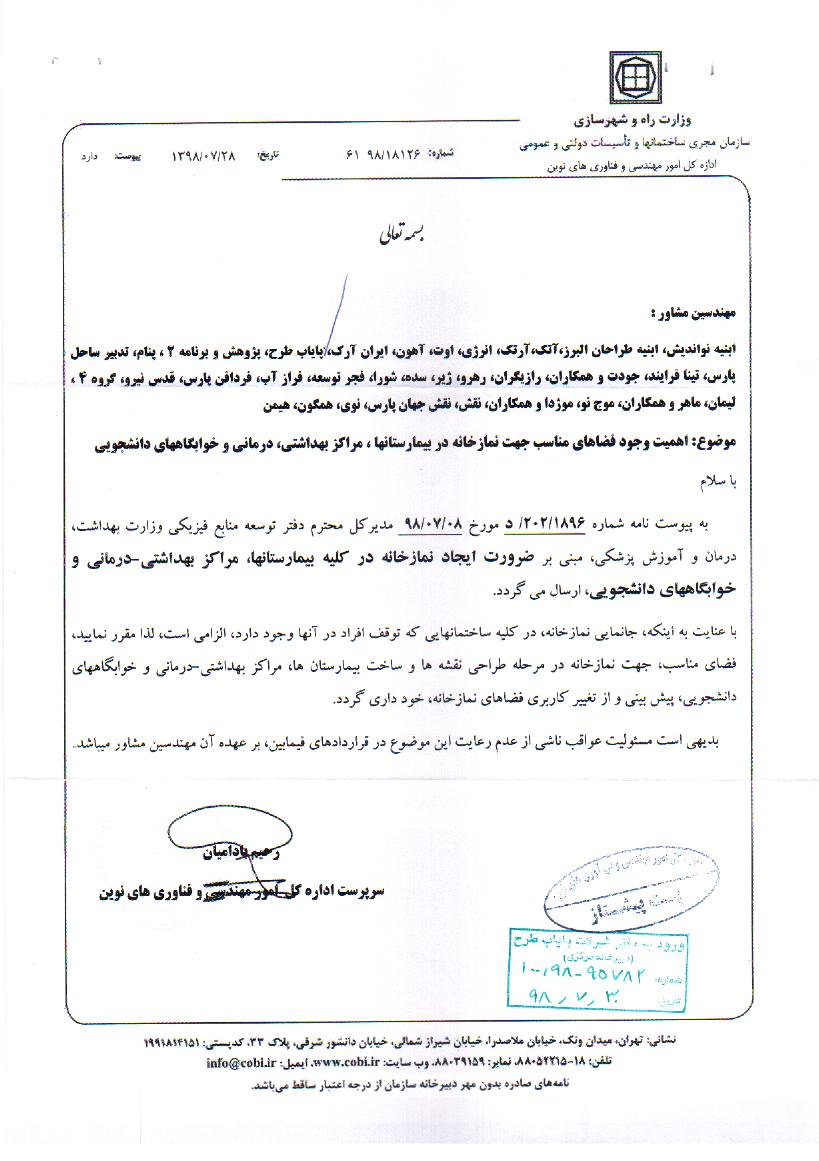 وزارت راه و شهرسازی
سازمان مجری ساختمانها و تأسیسات دولتی و عمومی
اداره کل امور مهندسی و فناوری های نوین
شماره: ۹۸/۱۸۱۲۶ ۶۱ تاریخ: ۱۳۹۸/۰۷/۲۸ پیوست: دارد
بسمه تعالی
مهندسین مشاور :
ابنیه نواندیش، ابنیه طراحان البرز،آتک،آرتک، انرژی، اوت، آهون، ایران آرک، پایاب طرح، پژوهش و برنامه ۲ ، پنام، تدبیر ساحل
پارس، تینا فرایند، جودت و همکاران، رازیگران، رهرو، ژیر، سده، شورا، فجر توسعه، فراز آب، فردافن پارس، قدس نیرو، گروه ۴ ،
لیمان، ماهر و همکاران، موج نو، موژدا و همکاران، نقش، نقش جهان پارس، نوی، همگون، هیمن
موضوع: اهمیت وجود فضاهای مناسب جهت نمازخانه در بیمارستانها ، مراکز بهداشتی، درمانی و خوابگاههای دانشجویی
با سلام
به پیوست نامه شماره ۲۰۲/۱۸۹۶/ د مورخ ۹۸/۰۷/۰۸ مدیرکل محترم دفتر توسعه منابع فیزیکی وزارت بهداشت،
درمان و آموزش پزشکی، مبنی بر ضرورت ایجاد نمازخانه در کلیه بیمارستانها، مراکز بهداشتی-درمانی و
خوابگاههای دانشجویی، ارسال می گردد.
با عنایت به اینکه، جانمایی نمازخانه، در کلیه ساختمانهایی که توقف افراد در آنها وجود دارد، الزامی است، لذا مقرر نمایید،
فضای مناسب، جهت نمازخانه در مرحله طراحی نقشه ها و ساخت بیمارستان ها، مراکز بهداشتی-درمانی و خوابگاههای
دانشجویی، پیش بینی و از تغییر کاربری فضاهای نمازخانه، خود داری گردد.
بدیهی است مسئولیت عواقب ناشی از عدم رعایت این موضوع در قراردادهای فیمابین، بر عهده آن مهندسین مشاور میباشد.
رحیم بادامیان
سرپرست اداره کل امور مهندسی و فناوری های نوین
پست پیشتاز
ورود به دفتر شرکت پایاب طرح
(دبیرخانه مرکزی)
شماره: ۱۰۰،۹۸-۹۵۷۸۲
تاریخ: ۹۸،۷،۳۰
نشانی: تهران، میدان ونک، خیابان ملاصدرا، خیابان شیراز شمالی، خیابان دانشور شرقی، پلاک ۲۳، کدپستی: ۱۹۹۱۸۱۴۱۵۱
تلفن: ۱۸-۸۸۰۵۲۲۱۵، نمابر: ۸۸۰۳۹۱۵۹، وب سایت: www.cobi.ir، ایمیل: info@cobi.ir
نامه‌های صادره بدون مهر دبیرخانه سازمان از درجه اعتبار ساقط می‌باشد.